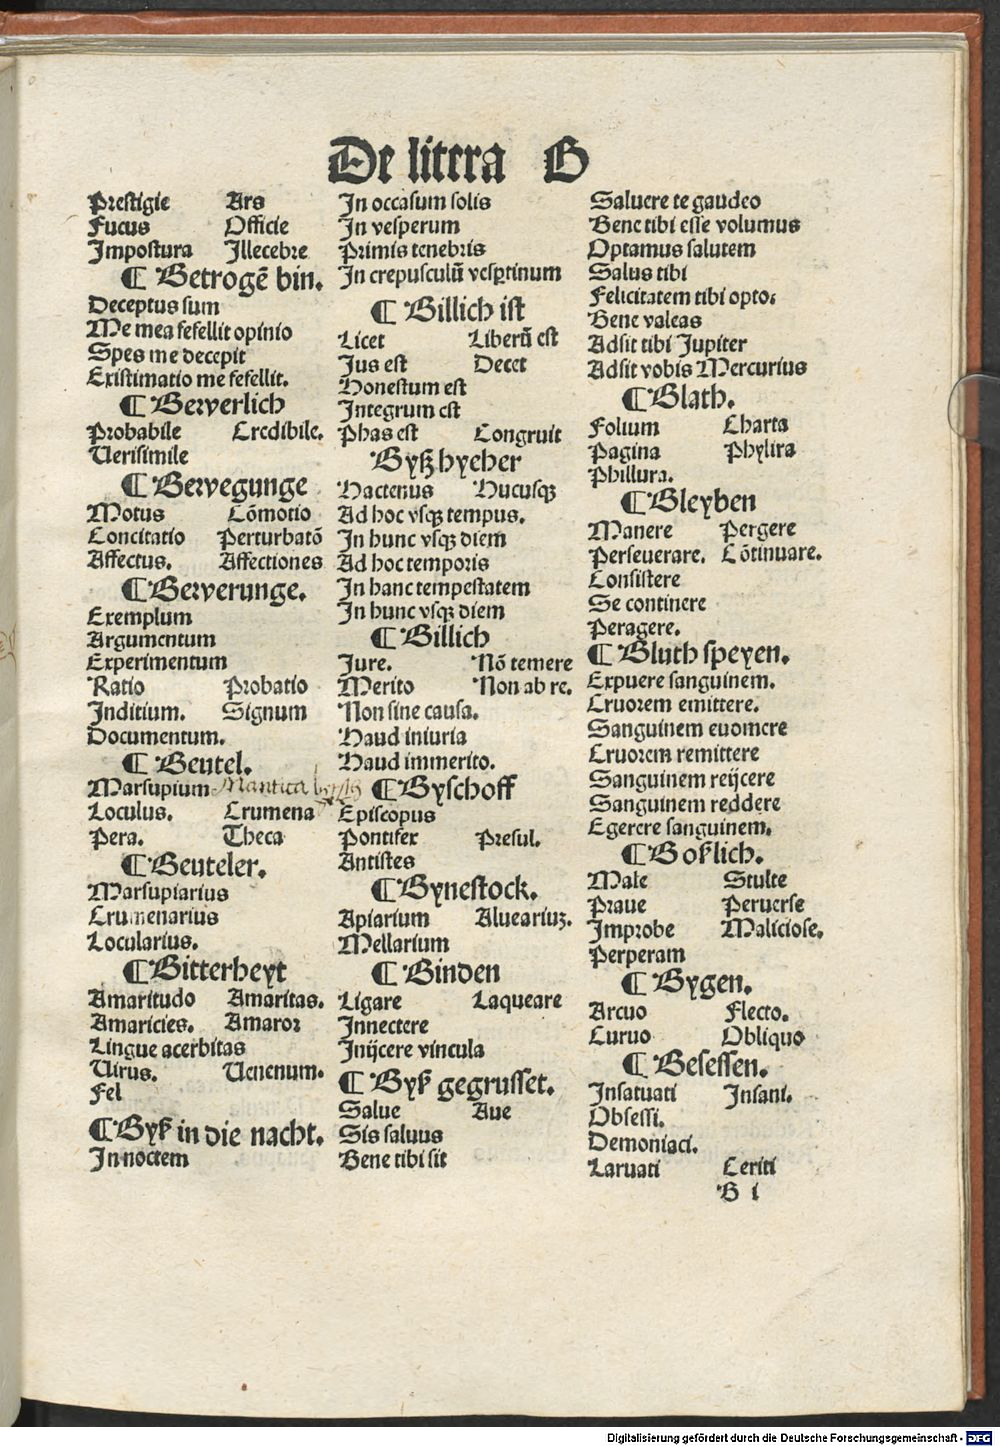 De litera B
Prestigie Ars
Fucus Officie
Impostura Illecebre
¶ Betrogē bin.
Deceptus sum
Me mea fefellit opinio
Spes me decepit
Existimatio me fefellit.
¶ Bewerlich
Probabile Credibile.
Uerisimile
¶ Bewegunge
Motus Cōmotio
Concitatio Perturbatō
Affectus. Affectiones
¶ Bewerunge.
Exemplum
Argumentum
Experimentum
Ratio Probatio
Inditium. Signum
Documentum.
¶ Beutel.
Marsupium Mantica
Loculus. Crumena
Pera. Theca
¶ Beuteler.
Marsupiarius
Crumenarius
Locularius.
¶ Bitterheyt
Amaritudo Amaritas.
Amaricies. Amaror
Lingue acerbitas
Uirus. Uenenum.
Fel
¶ Byß in die nacht.
In noctem
In occasum solis
In vesperum
Primis tenebris
In crepusculū vesꝑtinum
¶ Billich ist
Licet Liberū est
Jus est Decet
Honestum est
Integrum est
Phas est Congruit
Byß hyeher
Hactenus Hucusqꝫ
Ad hoc vsqꝫ tempus.
In hunc vsqꝫ diem
Ad hoc temporis
In hanc tempestatem
In hunc vsqꝫ diem
¶ Billich
Jure. Nō temere
Merito Non ab re.
Non sine causa.
Haud iniuria
Haud immerito.
¶ Byschoff
Episcopus
Pontifex Presul.
Antistes
¶ Bynestock.
Apiarium Alueariuꝫ.
Mellarium
¶ Binden
Ligare Laqueare
Innectere
Inijcere vincula
¶ Byß gegrusset.
Salue Aue
Sis saluus
Bene tibi sit
Saluere te gaudeo
Bene tibi esse volumus
Optamus salutem
Salus tibi
Felicitatem tibi opto:
Bene valeas
Adsit tibi Jupiter
Adsit vobis Mercurius
¶ Blath.
Folium Charta
Pagina Phylira
Phillura.
¶ Bleyben
Manere Pergere
Perseuerare. Cōtinuare.
Consistere
Se continere
Peragere.
¶ Bluth speyen.
Expuere sanguinem.
Cruorem emittere.
Sanguinem euomere
Cruorem remittere
Sanguinem reijcere
Sanguinem reddere
Egerere sanguinem.
¶ Boßlich.
Male Stulte
Praue Peruerse
Improbe Maliciose.
Perperam
¶ Bygen.
Arcuo Flecto.
Curuo Obliquo
¶ Besessen.
Insatuati Insani.
Obsessi.
Demoniaci.
Laruati Ceriti
B i
Digitalisierung gefördert durch die Deutsche Forschungsgemeinschaft - DFG